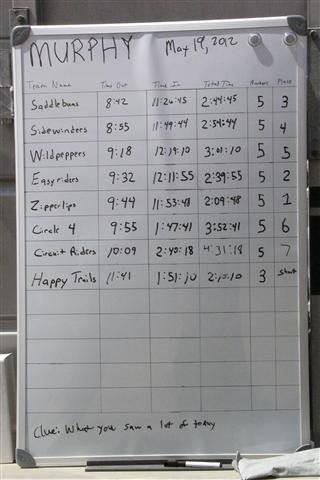 MURPHY May 19, 2012
Team Name Time Out Time In Total Time Answers Place
Saddlebums 8:42 11:26:45 2:44:45 5 3
Sidewinders 8:55 11:49:44 2:54:44 5 4
Wildpeppers 9:18 12:19:10 3:01:10 5 5
Easyriders 9:32 12:11:55 2:39:55 5 2
Zipperlips 9:44 11:53:48 2:09:48 5 1
Circle 4 9:55 1:47:41 3:52:41 5 6
Circuit Riders 10:09 2:40:18 4:31:18 5 7
Happy Trails 11:41 1:51:10 2:10:10 3 short
Clue: What you saw a lot of today